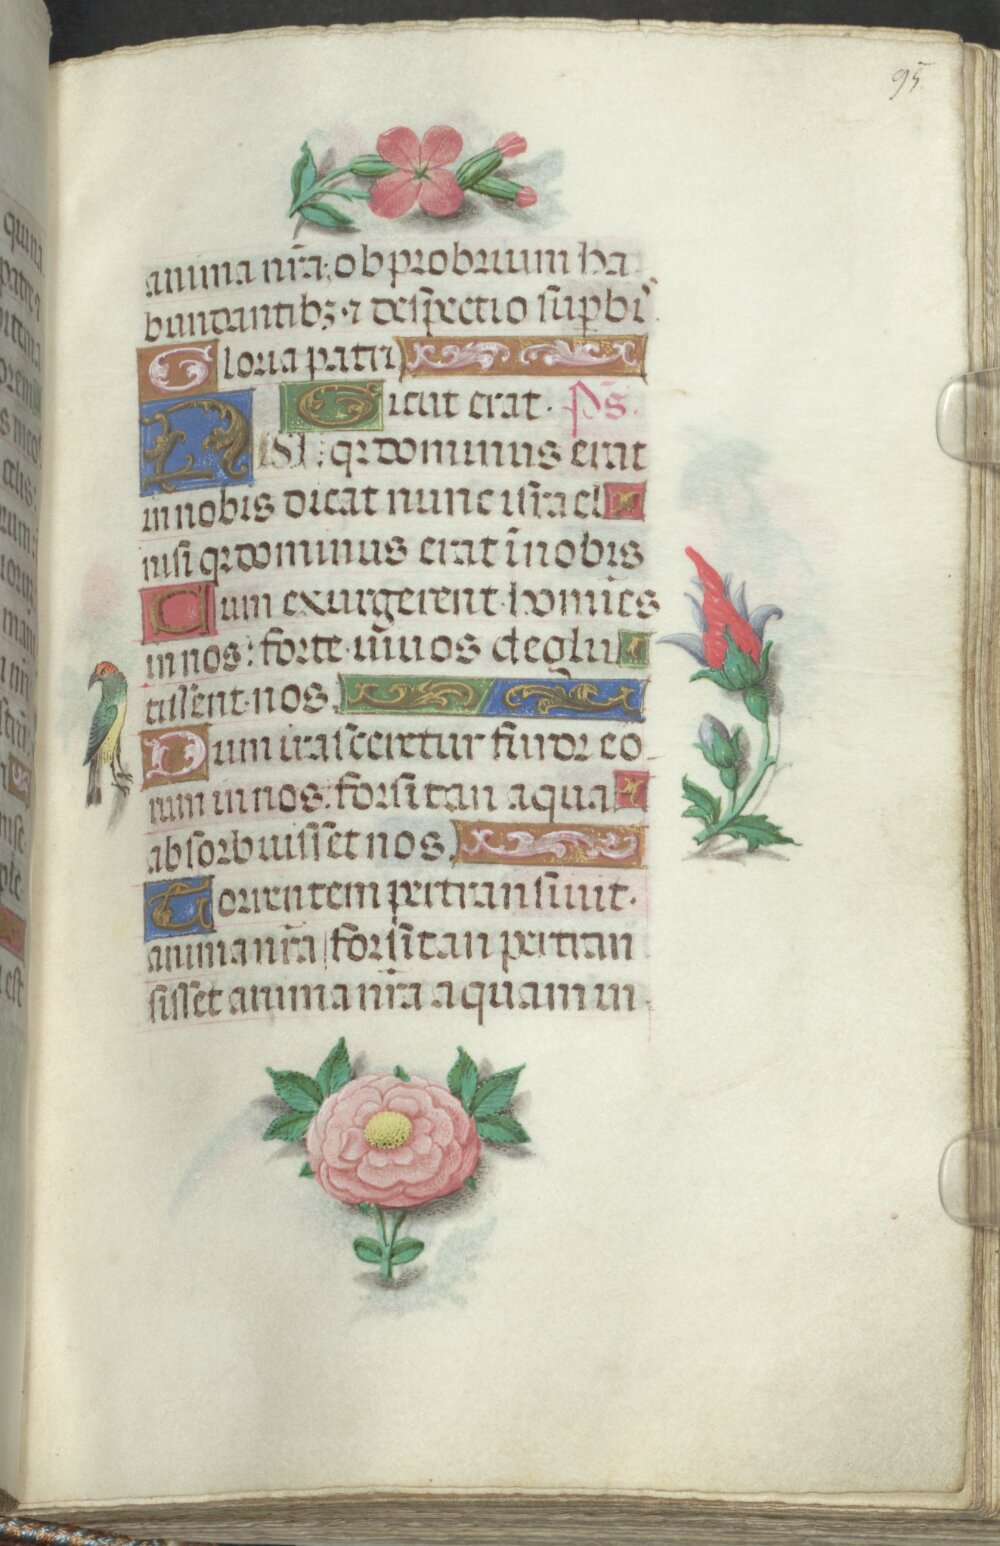 95
anima nr̄a; obprobrium ha
bundantibꝫ ⁊ despectio suꝑbis
Gloria patri
Sicut erat. Ps.
NISI qꝛ dominus erat
in nobis dicat nunc israel
nisi qꝛ dominus erat ī nobis
Cum exurgerent homīes
in nos: forte viuos deglu
tissent nos.
Dum irasceretur furor eo
rum in nos: forsitan aqua
absorbuisset nos.
Torrentem pertransiuit.
anima nr̄a forsitan pertran
sisset anima nr̄a aquam in